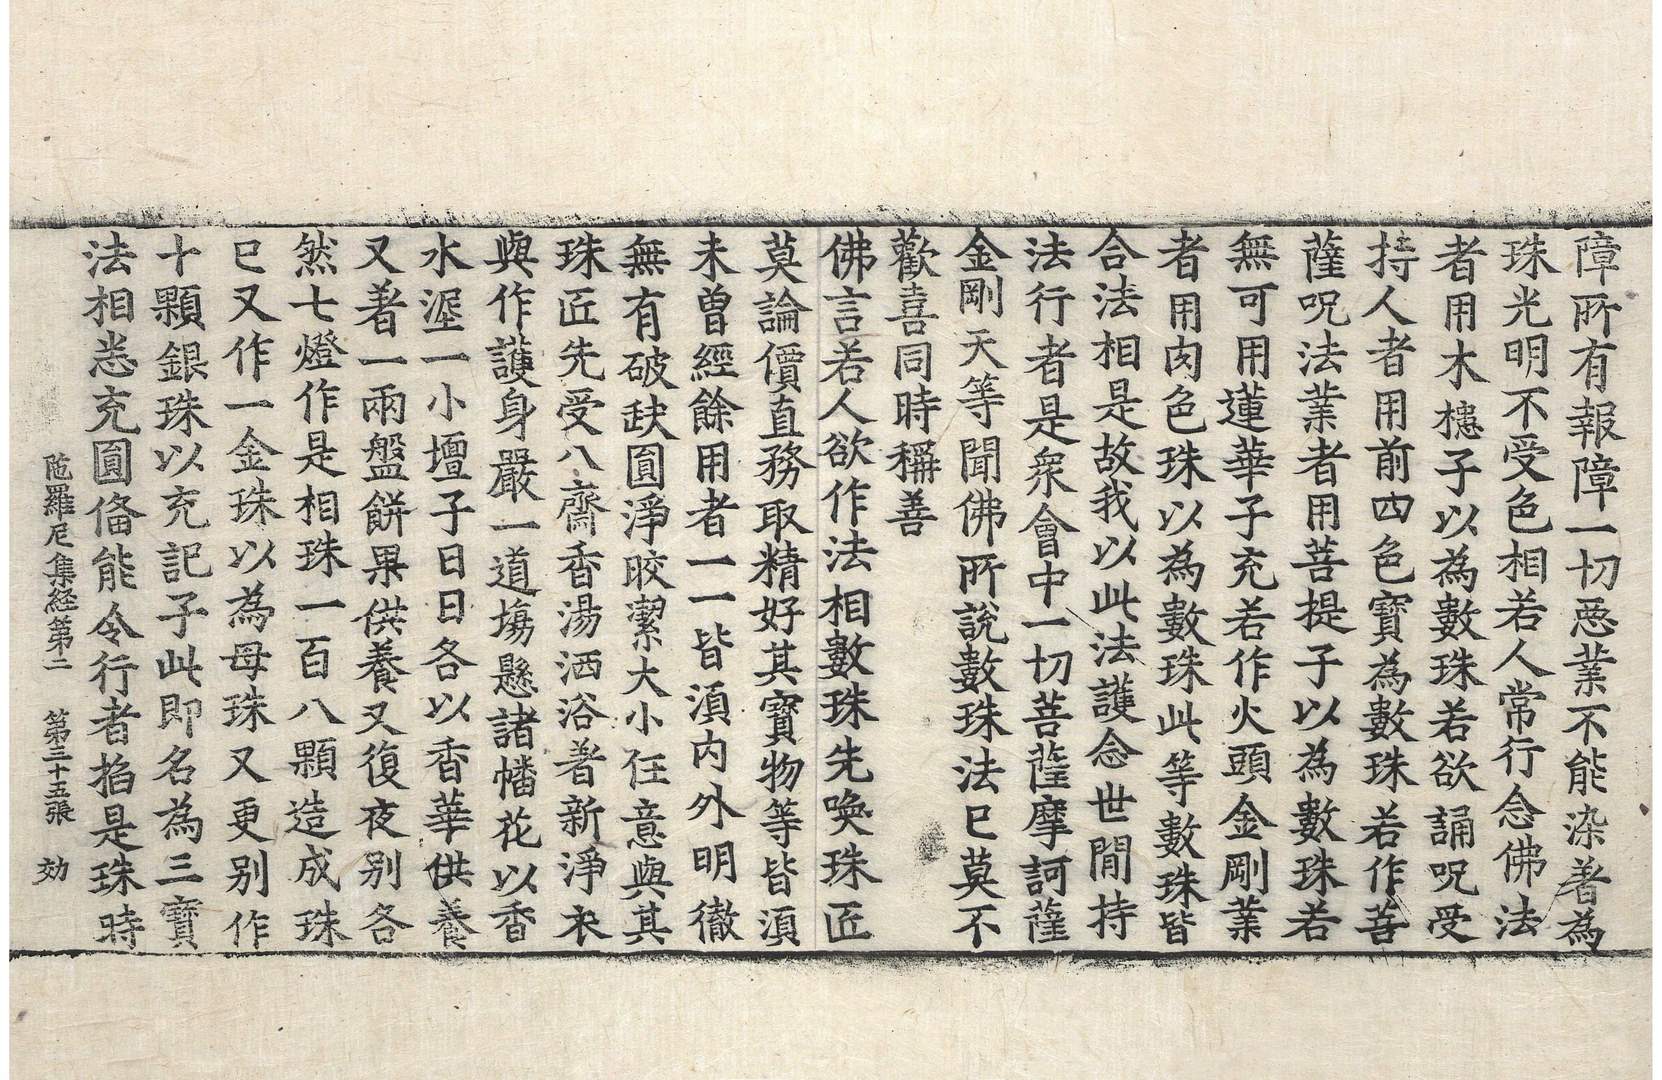 障所有報障一切惡業不能染著為
珠光明不受色相若人常行念佛法
者用木槵子以為數珠若欲誦呪受
持人者用前四色寶為數珠若作菩
薩呪法業者用菩提子以為數珠若
無可用蓮華子充若作火頭金剛業
者用肉色珠以為數珠此等數珠皆
合法相是故我以此法護念世間持
法行者是眾會中一切菩薩摩訶薩
金剛天等聞佛所說數珠法已莫不
歡喜同時稱善
佛言若人欲作法相數珠先喚珠匠
莫論價直務取精好其寶物等皆須
未曾經餘用者一一皆須內外明徹
無有破缺圓淨皎潔大小任意與其
珠匠先受八齋香湯洒浴著新淨衣
與作護身嚴一道場懸諸幡花以香
水渥一小壇子日日各以香華供養
又著一兩盤餅果供養又復夜別各
然七燈作是相珠一百八顆造成珠
已又作一金珠以為母珠又更別作
十顆銀珠以充記子此即名為三寶
法相悉充圓俻能令行者掐是珠時
陁羅尼集経第二 第三十五張 効